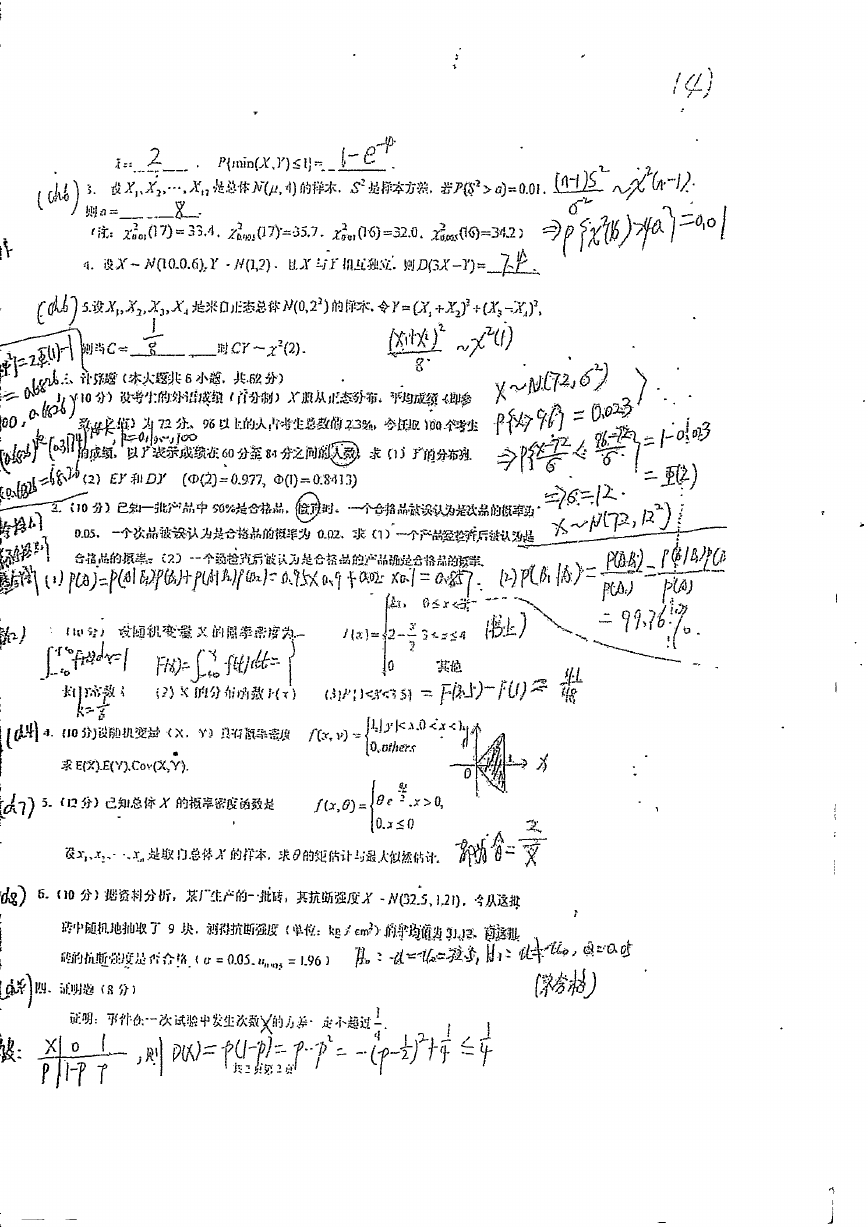 (4)
λ= 2 . P{min(X,Y)≤1}= 1-e^{-4} .
(ch6) 3. 设X₁,X₂,⋯,X₁₇是总体N(μ,4)的样本, S²是样本方差, 若P(S²>a)=0.01, (n-1)S²/σ² ~ χ²(n-1).
则a= 8 . ⇒P{χ²(16)>4a}=0.01
(注: χ²₀.₀₁(17)=33.4, χ²₀.₀₀₅(17)=35.7, χ²₀.₀₁(16)=32.0, χ²₀.₀₀₅(16)=34.2)
4. 设X~N(10,0.6),Y~N(1,2). 且X与Y相互独立. 则D(3X-Y)= 7.4 .
(ch6) 5.设X₁,X₂,X₃,X₄是来自正态总体N(0,2²)的样本,令Y=(X₁+X₂)²+(X₃-X₄)²,
则当C= 1/8 时CY~χ²(2). (X₁+X₂)²/8 ~χ²(1)
=2Φ(1)-1
=0.6826
三、计算题(本大题共6小题, 共62分)
X~N(72,σ²)
(10分) 设考生的外语成绩(百分制)X服从正态分布, 平均成绩(即参
数μ之值)为72分, 96以上的人占考生总数的2.3%, 今任取100个考生 P{X>96}=0.023
的成绩, 以Y表示成绩在60分至84分之间的人数, 求(1)Y的分布列. ⇒P{(X-72)/σ≤(96-72)/σ}=1-0.023
k=0,1,…,100
(2) EY和DY (Φ(2)=0.977, Φ(1)=0.8413) =Φ(2)
⇒σ=12.
X~N(72,12²)
2. (10分) 已知一批产品中90%是合格品, 检查时, 一个合格品被误认为是次品的概率为
0.05, 一个次品被误认为是合格品的概率为0.02, 求(1)一个产品经检查后被认为是
合格品的概率; (2)一个经检查后被认为是合格品的产品确是合格品的概率.
(1) P(A)=P(A|B₁)P(B₁)+P(A|B₂)P(B₂)=0.95×0.9+0.02×0.1=0.857. (2)P(B₁|A)=
=99.76%.
(10分) 设随机变量X的概率密度为 f(x)={kx, 0≤x<3; 2-x/2, 3≤x≤4; 0 其他 (书上)
∫f(x)dx=1 F(x)=∫f(t)dt=
求(1)常数k (2)X的分布函数F(x) (3)P{1<X<3.5} =F(3.5)-F(1)=41/48
k=1/6
(ch4) 4. (10分)设随机变量(X, Y)具有概率密度 f(x,y)={1,|y|<x,0<x<1, 0,others
0 1 X
求E(X),E(Y),Cov(X,Y).
5. (12分) 已知总体X的概率密度函数是 0,x≤0
设x₁,x₂,⋯,xₙ是取自总体X的样本, 求θ的矩估计与最大似然估计. θ̂=2/X̄
6. (10分) 据资料分析, 某厂生产的一批砖, 其抗断强度X~N(32.5,1.21), 今从这批
砖中随机地抽取了9块, 测得抗断强度(单位: kg/cm²)的平均值为31.12, 问这批
砖的抗断强度是否合格.(α=0.05, u₀.₀₂₅=1.96) H₀: μ=μ₀=32.5, H₁: μ≠μ₀, α=0.05
四、证明题(8分)
证明: 事件在一次试验中发生次数X的方差一定不超过1/4.
X 0 1
P 1-P P
,则 D(X)=p(1-p)=p-p²=-(p-1/2)²+1/4≤1/4
共2页第2页